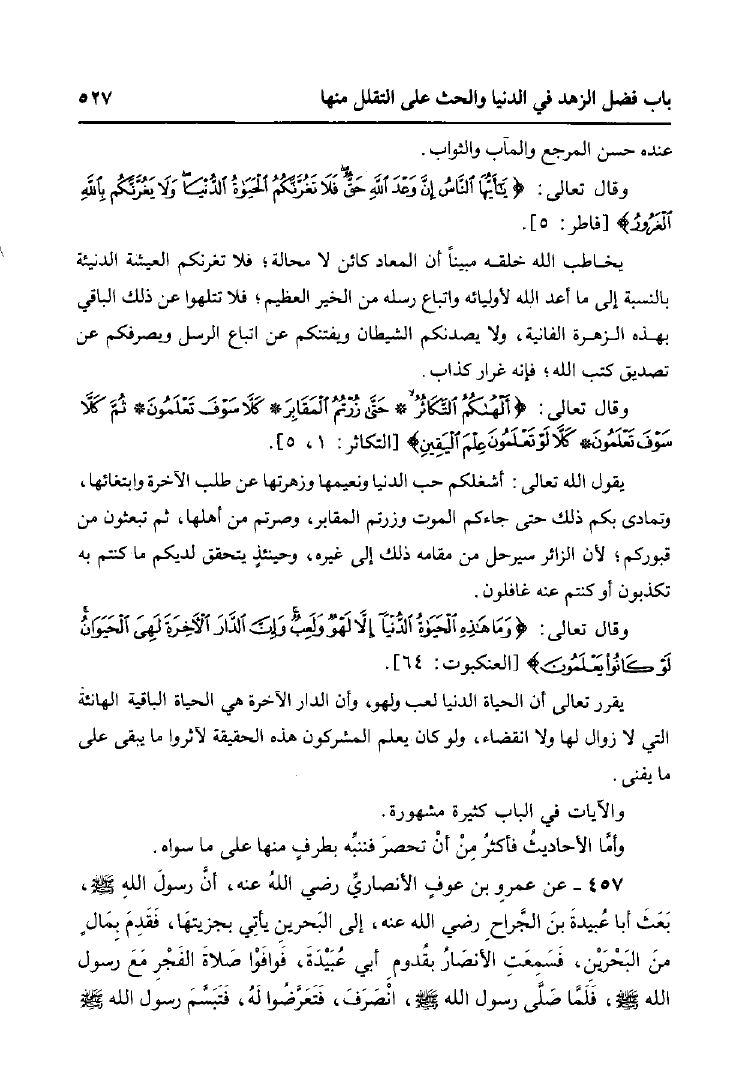 باب فضل الزهد في الدنيا والحث على التقلل منها ٥٢٧
عنده حسن المرجع والمآب والثواب.
وقال تعالى: ﴿ يَٰٓأَيُّهَا ٱلنَّاسُ إِنَّ وَعْدَ ٱللَّهِ حَقٌّ فَلَا تَغُرَّنَّكُمُ ٱلْحَيَوٰةُ ٱلدُّنْيَا وَلَا يَغُرَّنَّكُم بِٱللَّهِ
ٱلْغَرُورُ﴾ [فاطر: ٥].
يخاطب الله خلقه مبيناً أن المعاد كائن لا محالة؛ فلا تغرنكم العيشة الدنيئة
بالنسبة إلى ما أعد الله لأوليائه واتباع رسله من الخير العظيم؛ فلا تتلهوا عن ذلك الباقي
بهذه الزهرة الفانية، ولا يصدنكم الشيطان ويفتنكم عن اتباع الرسل ويصرفكم عن
تصديق كتب الله؛ فإنه غرار كذاب.
وقال تعالى: ﴿أَلْهَىٰكُمُ ٱلتَّكَاثُرُ * حَتَّىٰ زُرْتُمُ ٱلْمَقَابِرَ* كَلَّا سَوْفَ تَعْلَمُونَ* ثُمَّ كَلَّا
سَوْفَ تَعْلَمُونَ* كَلَّا لَوْ تَعْلَمُونَ عِلْمَ ٱلْيَقِينِ﴾ [التكاثر: ١، ٥].
يقول الله تعالى: أشغلكم حب الدنيا ونعيمها وزهرتها عن طلب الآخرة وابتغائها،
وتمادى بكم ذلك حتى جاءكم الموت وزرتم المقابر، وصرتم من أهلها، ثم تبعثون من
قبوركم؛ لأن الزائر سيرحل من مقامه ذلك إلى غيره، وحينئذٍ يتحقق لديكم ما كنتم به
تكذبون أو كنتم عنه غافلون.
وقال تعالى: ﴿ وَمَا هَٰذِهِ ٱلْحَيَوٰةُ ٱلدُّنْيَآ إِلَّا لَهْوٌ وَلَعِبٌ وَإِنَّ ٱلدَّارَ ٱلْآخِرَةَ لَهِىَ ٱلْحَيَوَانُ
لَوْ كَانُوا۟ يَعْلَمُونَ﴾ [العنكبوت: ٦٤].
يقرر تعالى أن الحياة الدنيا لعب ولهو، وأن الدار الآخرة هي الحياة الباقية الهانئة
التي لا زوال لها ولا انقضاء، ولو كان يعلم المشركون هذه الحقيقة لآثروا ما يبقى على
ما يفنى.
والآيات في الباب كثيرة مشهورة.
وأمَّا الأحاديثُ فأكثرُ مِنْ أنْ تحصرَ فننبِّه بطرفٍ منها على ما سواه.
٤٥٧ - عن عمرو بن عوفٍ الأنصاريِّ رضي اللهُ عنه، أنَّ رسولَ اللهِ ﷺ،
بَعَثَ أبا عُبيدةَ بنَ الجَّراحِ رضي الله عنه، إلى البَحرين يأتي بجزيتها، فَقَدِمَ بِمَالٍ
منَ البَحْرَيْن، فَسَمِعَتِ الأنصَارُ بقُدوم أبي عُبَيْدَةَ، فَوافَوْا صَلاةَ الفَجْرِ مَعَ رسول
الله ﷺ، فَلَمَّا صَلَّى رسول الله ﷺ، انْصَرَفَ، فَتَعَرَّضُوا لَهُ، فَتَبَسَّمَ رسول الله ﷺ